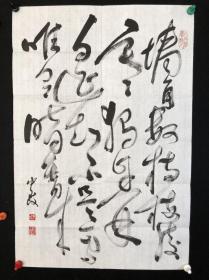 墙角数枝梅凌
寒独自开
遥知不是雪
唯有暗香来